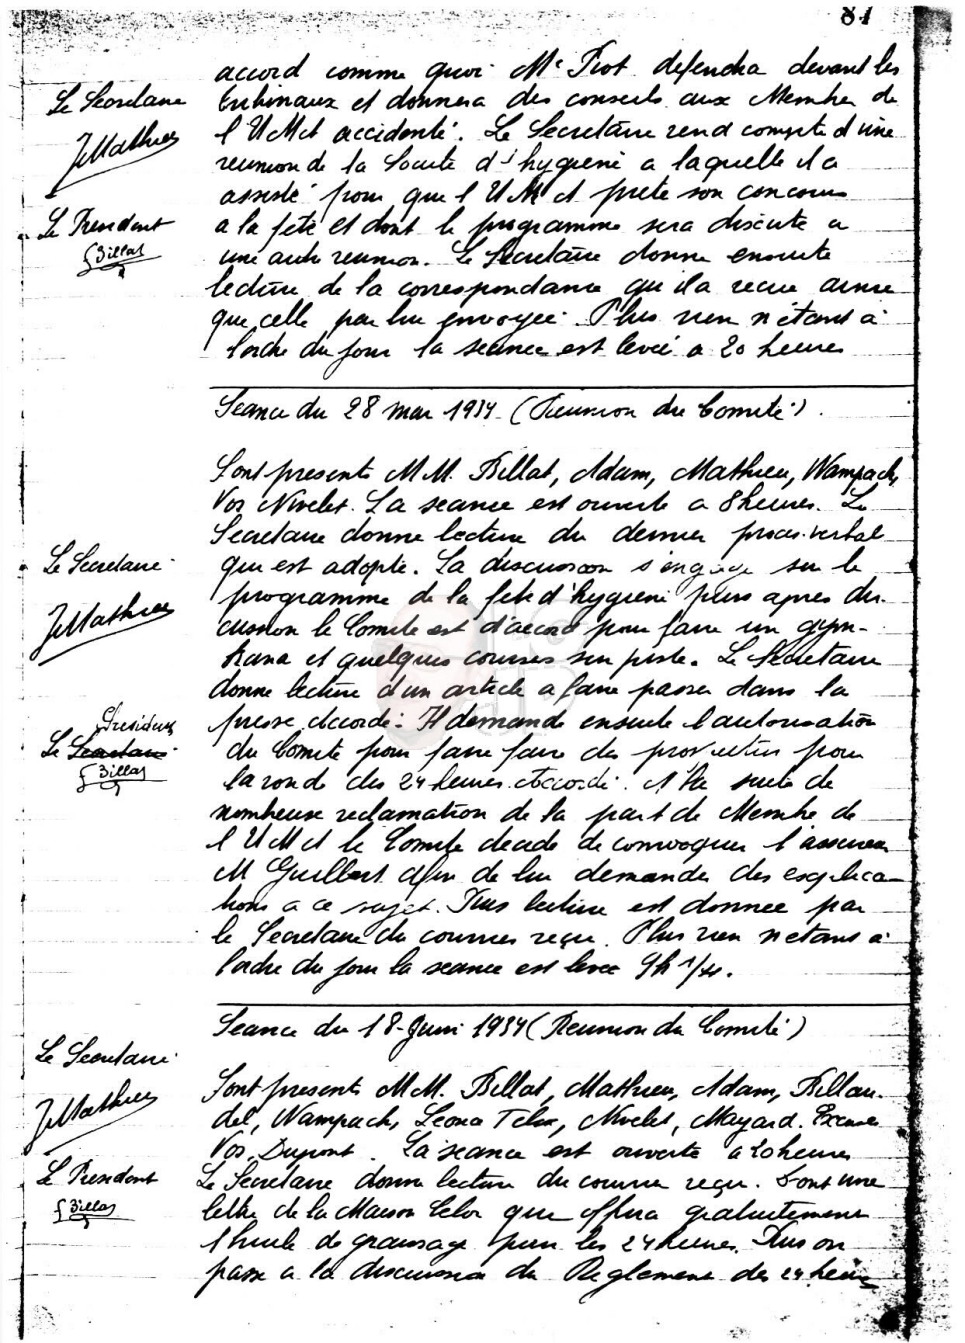 81
accord comme quoi Me Piot defendra devant les
Tribunaux et donnera des conseils aux Membres de
l'UMct accidenté. Le Secretaire rend compte d'une
reunion de la Societe d'hygiene a laquelle il a
assisté pour que l'UMct prete son concours
a la fete et dont le programme sera discute a
une autre reunion. Le Secretaire donne ensuite
lecture de la correspondance qu'il a recue ainsi
que celle par lui envoyée. Plus rien n'étant à
l'ordre du jour la seance est levée a 20 heures
Le Secretaire
JMathieu
Le President
Billat
Seance du 28 mai 1934 (Reunion du Comité)
Sont presents MM. Billat, Adam, Mathieu, Wampach,
Vos Nivelet. La seance est ouverte a 8 heures. Le
Secretaire donne lecture du dernier proces-verbal
qui est adopte. La discussion s'engage sur le
programme de la fete d'hygiene puis apres dis-
cussion le Comite est d'accord pour faire un gym-
kana et quelques courses sur piste. Le Secretaire
donne lecture d'un article a faire passer dans la
presse. Accordé. Il demande ensuite l'autorisation
du Comite pour faire faire des prospectus pour
la ronde des 24 heures. Accordé. A la suite de
nombreuse reclamation de la part de Membre de
l'UMct le Comite decide de convoquer l'assureur
M Guilbert afin de lui demander des explica-
tions a ce sujet. Puis lecture est donnee par
le Secretaire du courrier reçu. Plus rien n'etant à
l'ordre du jour la seance est levee 9h 1/4.
Le Secretaire
JMathieu
President
Le Secretaire
Billat
Seance du 18 Juin 1934 (Reunion du Comité)
Sont presents MM. Billat, Mathieu, Adam, Billau-
del, Wampach, Nivelet, Mayard. Excuses
Vos, Dupont. La seance est ouverte a 20 heures
Le Secretaire donne lecture du courrier reçu. Sont une
lettre de la Maison qui offrira gratuitement
l'huile de graissage pour les 24 heures. Puis on
passe a la discussion du Reglement des 24 heures
Le Secretaire
JMathieu
Le President
Billat